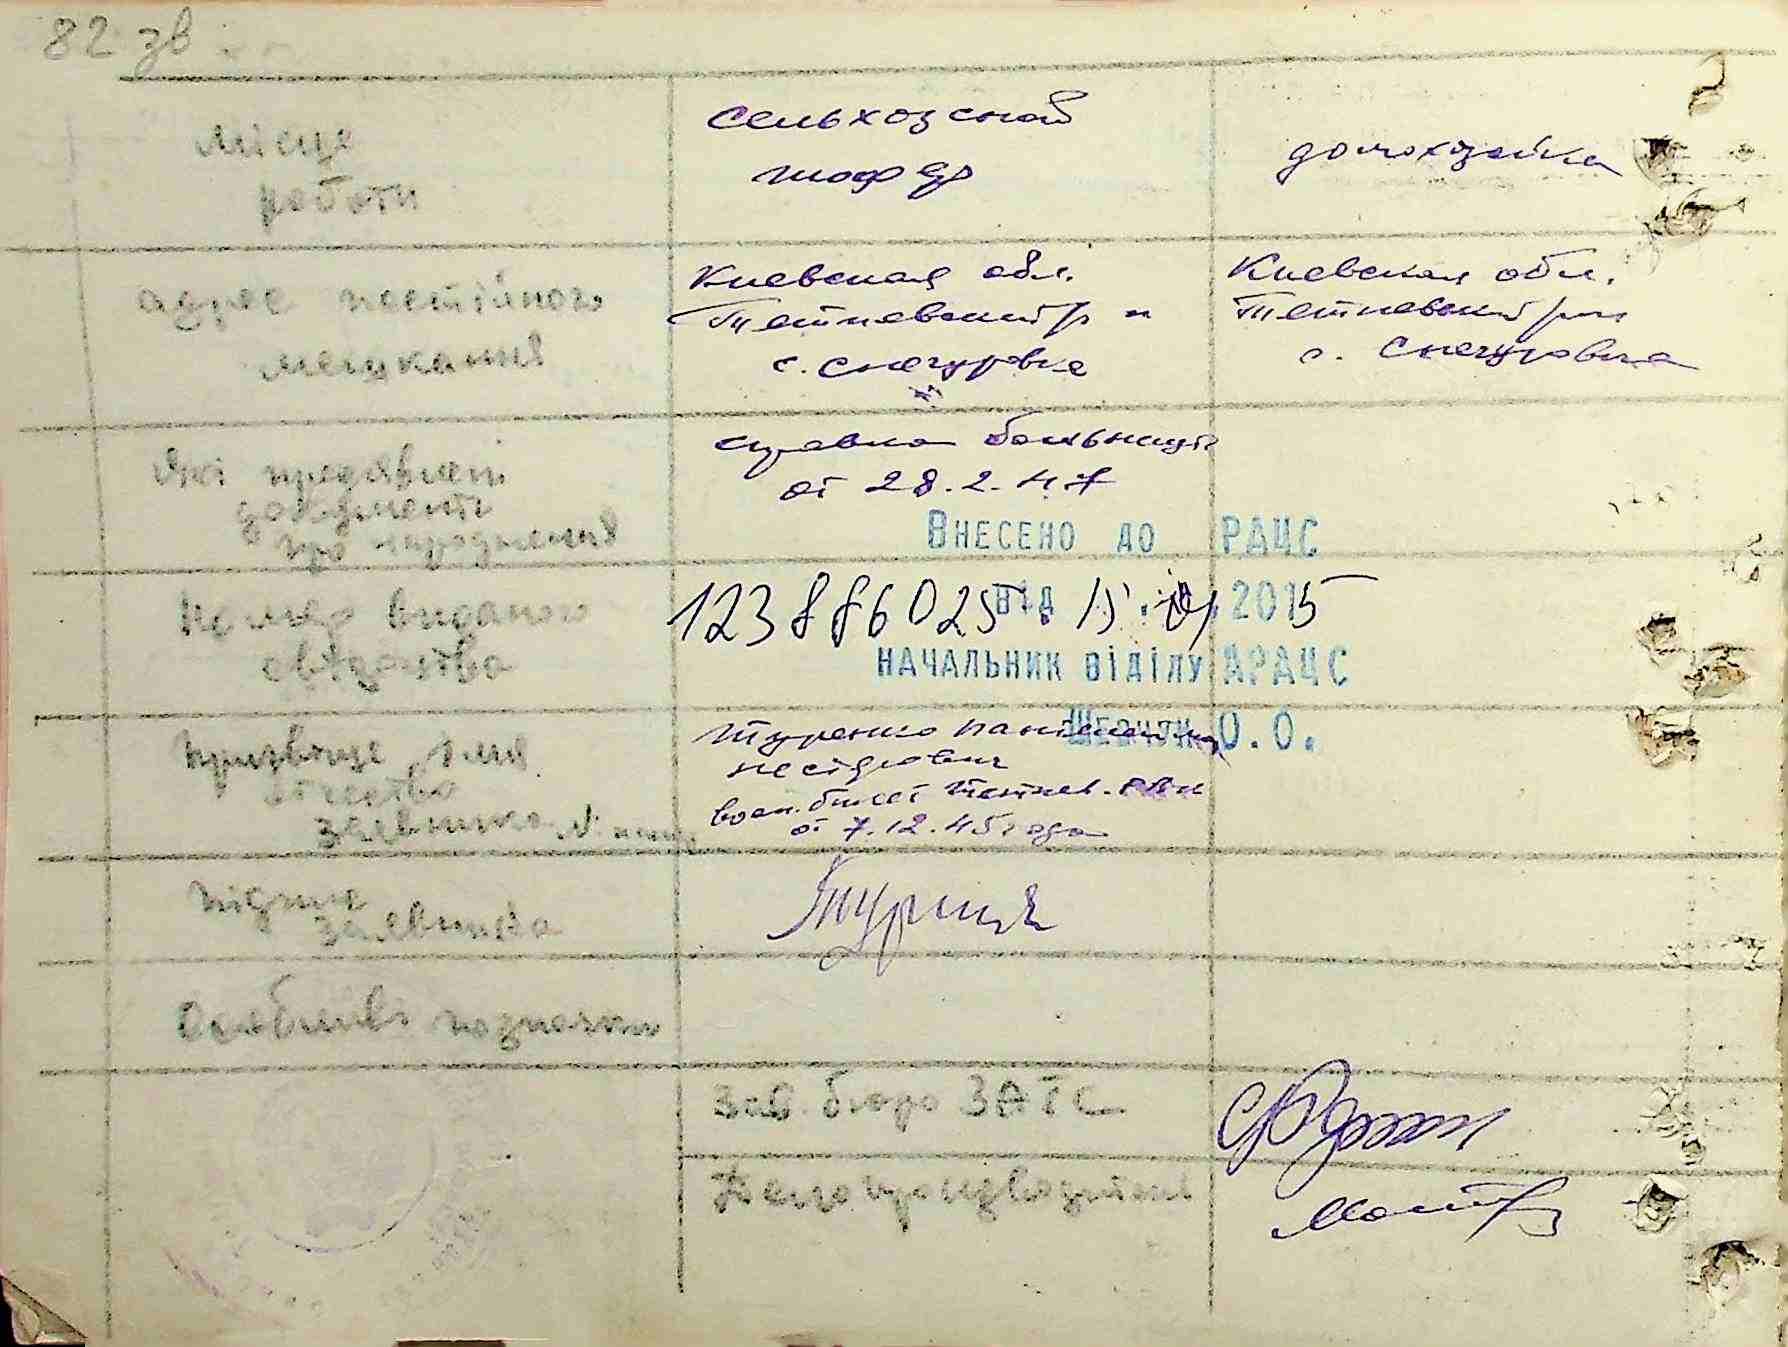 82 зв
Місце
роботи
сельхозснаб
шофер
домохозяйка
адрес постійного
мешкання
Киевская обл.
Тетиевский р-н
с. Снегуровка
Киевская обл.
Тетиевский р-н
с. Снегуровка
Які предявлені
документи
про народження
справка больницы
от 28.2.47
Внесено до РАЦС
Номер виданого
свідоцтва
123886025 від 15. 2015
НАЧАЛЬНИК ВІДІЛУ АРАЦС
О.О.
Призвище, імя
отчество
заявника
Туренко
Несторович
воен. билет Тетиев. РВК
от 7.12.45 года
Підпис
заявника
Особливі позначки
Зав. бюро ЗАГС
Делопроизводитель